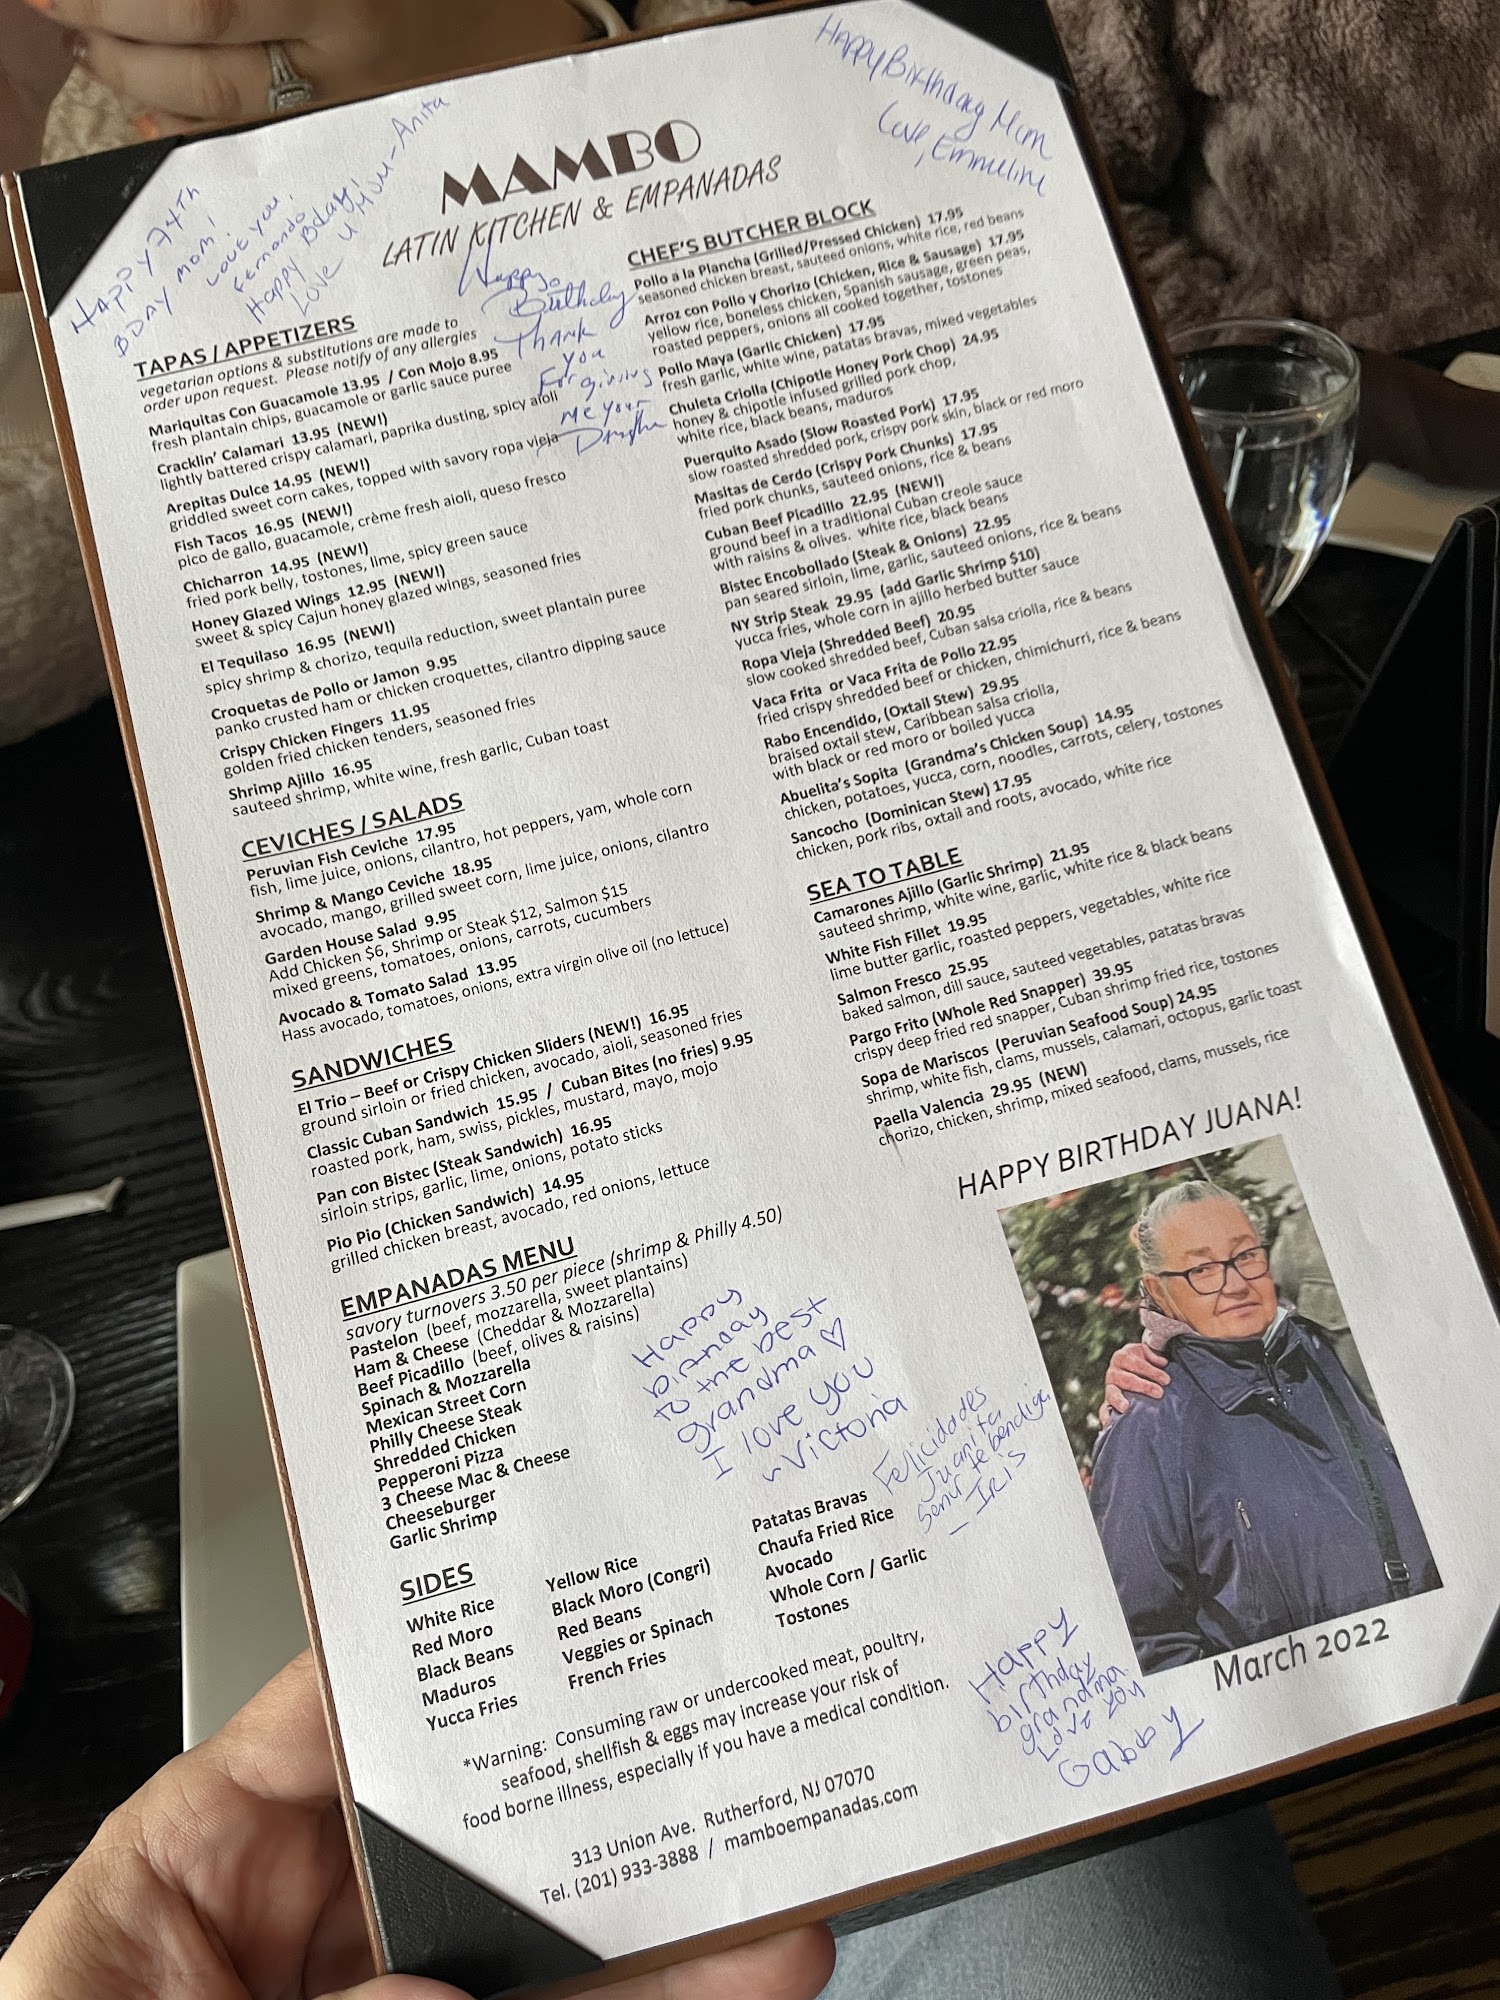 Happy Birthday Mom
Love, Emmeline
MAMBO
LATIN KITCHEN & EMPANADAS
HAPPY 74TH
BDAY MOM!
LOVE YOU,
FERNANDO
Happy Bday!
Love u Mum - Anita
Happy
Birthday
Thank
you
For giving
me your
TAPAS / APPETIZERS
vegetarian options & substitutions are made to
order upon request. Please notify of any allergies
Mariquitas Con Guacamole 13.95 / Con Mojo 8.95
fresh plantain chips, guacamole or garlic sauce puree
Cracklin' Calamari 13.95 (NEW!)
lightly battered crispy calamari, paprika dusting, spicy aioli
Arepitas Dulce 14.95 (NEW!)
griddled sweet corn cakes, topped with savory ropa vieja
Fish Tacos 16.95 (NEW!)
pico de gallo, guacamole, crème fresh aioli, queso fresco
Chicharron 14.95 (NEW!)
fried pork belly, tostones, lime, spicy green sauce
Honey Glazed Wings 12.95 (NEW!)
sweet & spicy Cajun honey glazed wings, seasoned fries
El Tequilaso 16.95 (NEW!)
spicy shrimp & chorizo, tequila reduction, sweet plantain puree
Croquetas de Pollo or Jamon 9.95
panko crusted ham or chicken croquettes, cilantro dipping sauce
Crispy Chicken Fingers 11.95
golden fried chicken tenders, seasoned fries
Shrimp Ajillo 16.95
sauteed shrimp, white wine, fresh garlic, Cuban toast
CEVICHES / SALADS
Peruvian Fish Ceviche 17.95
fish, lime juice, onions, cilantro, hot peppers, yam, whole corn
Shrimp & Mango Ceviche 18.95
avocado, mango, grilled sweet corn, lime juice, onions, cilantro
Garden House Salad 9.95
Add Chicken $6, Shrimp or Steak $12, Salmon $15
mixed greens, tomatoes, onions, carrots, cucumbers
Avocado & Tomato Salad 13.95
Hass avocado, tomatoes, onions, extra virgin olive oil (no lettuce)
SANDWICHES
El Trio – Beef or Crispy Chicken Sliders (NEW!) 16.95
ground sirloin or fried chicken, avocado, aioli, seasoned fries
Classic Cuban Sandwich 15.95 / Cuban Bites (no fries) 9.95
roasted pork, ham, swiss, pickles, mustard, mayo, mojo
Pan con Bistec (Steak Sandwich) 16.95
sirloin strips, garlic, lime, onions, potato sticks
Pio Pio (Chicken Sandwich) 14.95
grilled chicken breast, avocado, red onions, lettuce
EMPANADAS MENU
savory turnovers 3.50 per piece (shrimp & Philly 4.50)
Pastelon (beef, mozzarella, sweet plantains)
Ham & Cheese (Cheddar & Mozzarella)
Beef Picadillo (beef, olives & raisins)
Spinach & Mozzarella
Mexican Street Corn
Philly Cheese Steak
Shredded Chicken
Pepperoni Pizza
3 Cheese Mac & Cheese
Cheeseburger
Garlic Shrimp
CHEF'S BUTCHER BLOCK
Pollo a la Plancha (Grilled/Pressed Chicken) 17.95
seasoned chicken breast, sauteed onions, white rice, red beans
Arroz con Pollo y Chorizo (Chicken, Rice & Sausage) 17.95
yellow rice, boneless chicken, Spanish sausage, green peas,
roasted peppers, onions all cooked together, tostones
Pollo Maya (Garlic Chicken) 17.95
fresh garlic, white wine, patatas bravas, mixed vegetables
Chuleta Criolla (Chipotle Honey Pork Chop) 24.95
honey & chipotle infused grilled pork chop,
white rice, black beans, maduros
Puerquito Asado (Slow Roasted Pork) 17.95
slow roasted shredded pork, crispy pork skin, black or red moro
Masitas de Cerdo (Crispy Pork Chunks) 17.95
fried pork chunks, sauteed onions, rice & beans
Cuban Beef Picadillo 22.95 (NEW!)
ground beef in a traditional Cuban creole sauce
with raisins & olives. white rice, black beans
Bistec Encobollado (Steak & Onions) 22.95
pan seared sirloin, lime, garlic, sauteed onions, rice & beans
NY Strip Steak 29.95 (add Garlic Shrimp $10)
yucca fries, whole corn in ajillo herbed butter sauce
Ropa Vieja (Shredded Beef) 20.95
slow cooked shredded beef, Cuban salsa criolla, rice & beans
Vaca Frita or Vaca Frita de Pollo 22.95
fried crispy shredded beef or chicken, chimichurri, rice & beans
Rabo Encendido, (Oxtail Stew) 29.95
braised oxtail stew, Caribbean salsa criolla,
with black or red moro or boiled yucca
Abuelita's Sopita (Grandma's Chicken Soup) 14.95
chicken, potatoes, yucca, corn, noodles, carrots, celery, tostones
Sancocho (Dominican Stew) 17.95
chicken, pork ribs, oxtail and roots, avocado, white rice
SEA TO TABLE
Camarones Ajillo (Garlic Shrimp) 21.95
sauteed shrimp, white wine, garlic, white rice & black beans
White Fish Fillet 19.95
lime butter garlic, roasted peppers, vegetables, white rice
Salmon Fresco 25.95
baked salmon, dill sauce, sauteed vegetables, patatas bravas
Pargo Frito (Whole Red Snapper) 39.95
crispy deep fried red snapper, Cuban shrimp fried rice, tostones
Sopa de Mariscos (Peruvian Seafood Soup) 24.95
shrimp, white fish, clams, mussels, calamari, octopus, garlic toast
Paella Valencia 29.95 (NEW)
chorizo, chicken, shrimp, mixed seafood, clams, mussels, rice
HAPPY BIRTHDAY JUANA!
March 2022
Happy
birthday
to the best
grandma ♡
I love you
~Victoria
Felicidades
Juanita
te bendiga
- IRIS
SIDES
White Rice
Red Moro
Black Beans
Maduros
Yucca Fries
Yellow Rice
Black Moro (Congri)
Red Beans
Veggies or Spinach
French Fries
Patatas Bravas
Chaufa Fried Rice
Avocado
Whole Corn / Garlic
Tostones
Happy
birthday
grandma
Love you
Gabby
*Warning: Consuming raw or undercooked meat, poultry,
seafood, shellfish & eggs may increase your risk of
food borne illness, especially if you have a medical condition.
313 Union Ave. Rutherford, NJ 07070
Tel. (201) 933-3888 / mamboempanadas.com